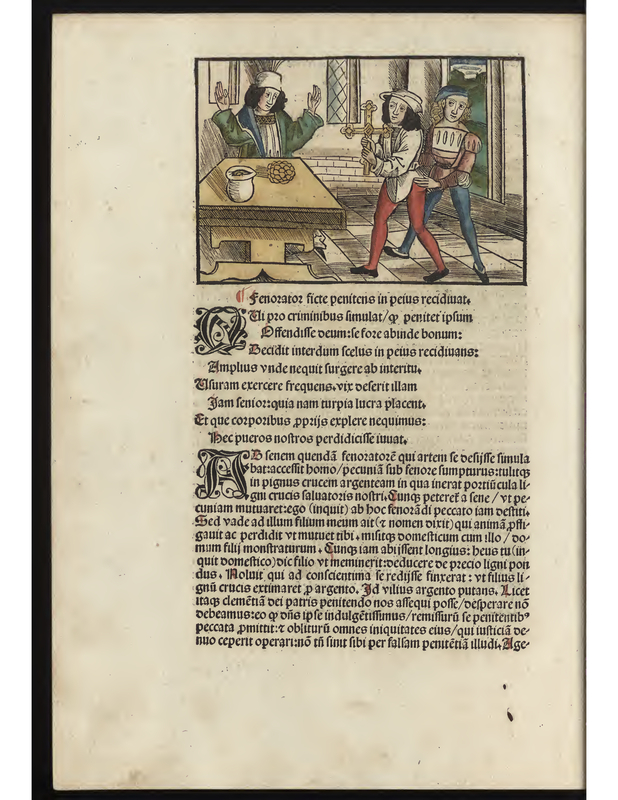 ¶ Fenorator ficte penitens in peius recidiuat.
QUi pro criminibus simulat/ꝙ penitet ipsum
Offendisse deum: se fore abinde bonum:
Decidit interdum scelus in peius recidiuans:
Amplius vnde nequit surgere ab interitu.
Usuram exercere frequens. vix deserit illam
Jam senior: quia nam turpia lucra placent.
Et que corporibus ꝓprijs explere nequimus:
Hec pueros nostros perdidicisse iuuat.
AD senem quendā fenoratorē qui artem se desijsse simula
bat: accessit homo/pecuniā sub fenore sumpturus: tulitqꝫ
in pignus crucem argenteam in qua inerat portiūcula li-
gni crucis saluatoris nostri. Cunqꝫ peteret̄ a sene/vt pe-
cuniam mutuaret: ego (inquit) ab hoc fenorādi peccato iam destiti.
Sed vade ad illum filium meum ait (⁊ nomen dixit) qui animā ꝓfli-
gauit ac perdidit vt mutuet tibi. misitqꝫ domesticum cum illo/do-
mum filij monstraturum. Cunqꝫ iam abijssent longius: heus tu (in-
quit domestico) dic filio vt meminerit: deducere de precio ligni pon
dus. Noluit qui ad conscientima se redijsse finxerat: vt filius li-
gnū crucis extimaret ꝓ argento. Id vilius argento putans. Licet
itaqꝫ clemētiā dei patris penitendo nos assequi posse/desperare nō
debeamus: eo ꝙ dn̄s ipse indulgētissimus/remissurū se penitentibꝰ
peccata ꝓmittit: ⁊ obliturū omnes iniquitates eius/qui iusticiā de-
nuo ceperit operari: nō tn̄ sinit sibi per falsam penitētiā illudi. Age-